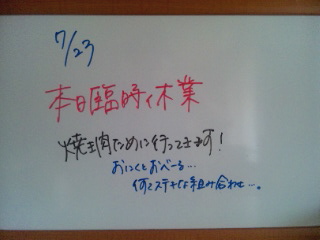 7/23
本日臨時休業
焼き肉ために行ってきます!
おにくとおべーる…
何てステキな組み合わせ…。